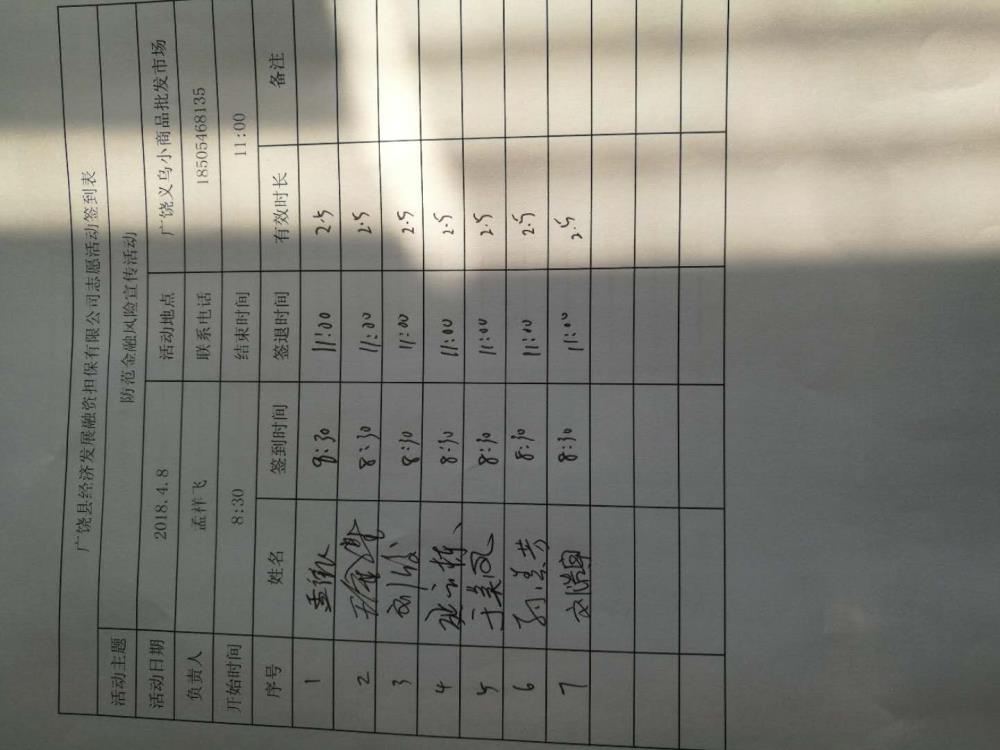 广饶县经济发展融资担保有限公司志愿活动签到表
活动主题 防范金融风险宣传活动
活动日期 2018.4.8 活动地点 广饶义乌小商品批发市场
负责人 孟祥飞 联系电话 18505468135
开始时间 8:30 结束时间 11:00
序号 姓名 签到时间 签退时间 有效时长 备注
1 8:30 11:00 2.5
2 8:30 11:00 2.5
3 8:30 11:00 2.5
4 8:30 11:00 2.5
5 于美凤 8:30 11:00 2.5
6 8:30 11:00 2.5
7 8:30 11:00 2.5